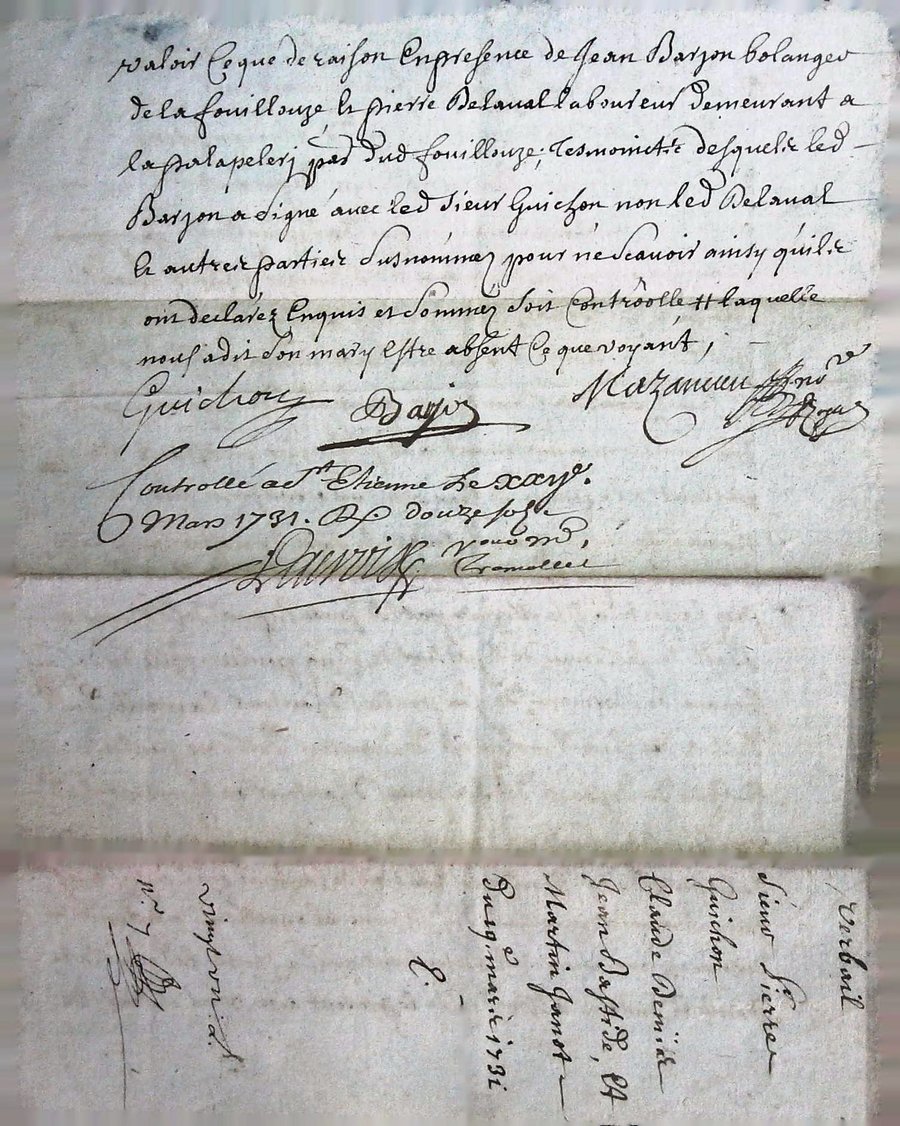 valoir Ceque de raison Enpresence de Jean Barjon bolanger
de la fouillouze Et pierre Delaval laboureur demeurant a
la palapelerj parr dud fouillouze; Tesmoins desquels led
Barjon a Signé avec led Sieur Guichon non led Delaval
Et autres parties Susnommez pour ne Scavoir ainsy quils
ont declarez Enquis et Sommez Soit Controolle # laquelle
nous a dit Son mary Estre absent Ce que voyant,
Guichon
Barjon
Mazancieu
Controllé a St Etienne le xxve
Mars 1731. R douze sols
Verbail
Sieur Pierre
Guichon
Claude
Jean Bastide, Et
Martin Janot
Du mars 1731
C.
vingt un s.